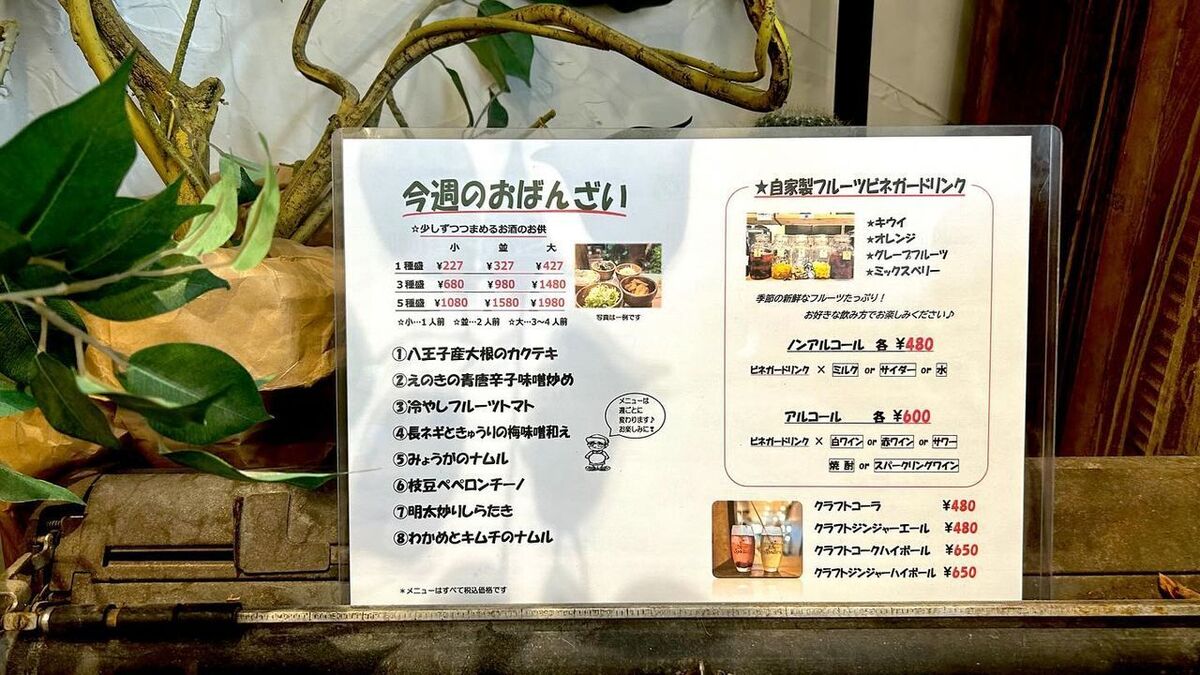 今週のおばんざい
☆少しずつつまめるお酒のお供
小 並 大
1種盛 ¥227 ¥327 ¥427
3種盛 ¥680 ¥980 ¥1480
5種盛 ¥1080 ¥1580 ¥1980
☆小…1人前 ☆並…2人前 ☆大…3～4人前
写真は一例です
①八王子産大根のカクテキ
②えのきの青唐辛子味噌炒め
③冷やしフルーツトマト
④長ネギときゅうりの梅味噌和え
⑤みょうがのナムル
⑥枝豆ペペロンチーノ
⑦明太炒りしらたき
⑧わかめとキムチのナムル
メニューは
週ごとに
変わります♪
お楽しみに!
*メニューはすべて税込価格です
★自家製フルーツビネガードリンク
★キウイ
★オレンジ
★グレープフルーツ
★ミックスベリー
季節の新鮮なフルーツたっぷり!
お好きな飲み方でお楽しみください♪
ノンアルコール 各 ¥480
ビネガードリンク × ミルク or サイダー or 水
アルコール 各 ¥600
ビネガードリンク × 白ワイン or 赤ワイン or サワー
焼酎 or スパークリングワイン
クラフトコーラ ¥480
クラフトジンジャーエール ¥480
クラフトコークハイボール ¥650
クラフトジンジャーハイボール ¥650